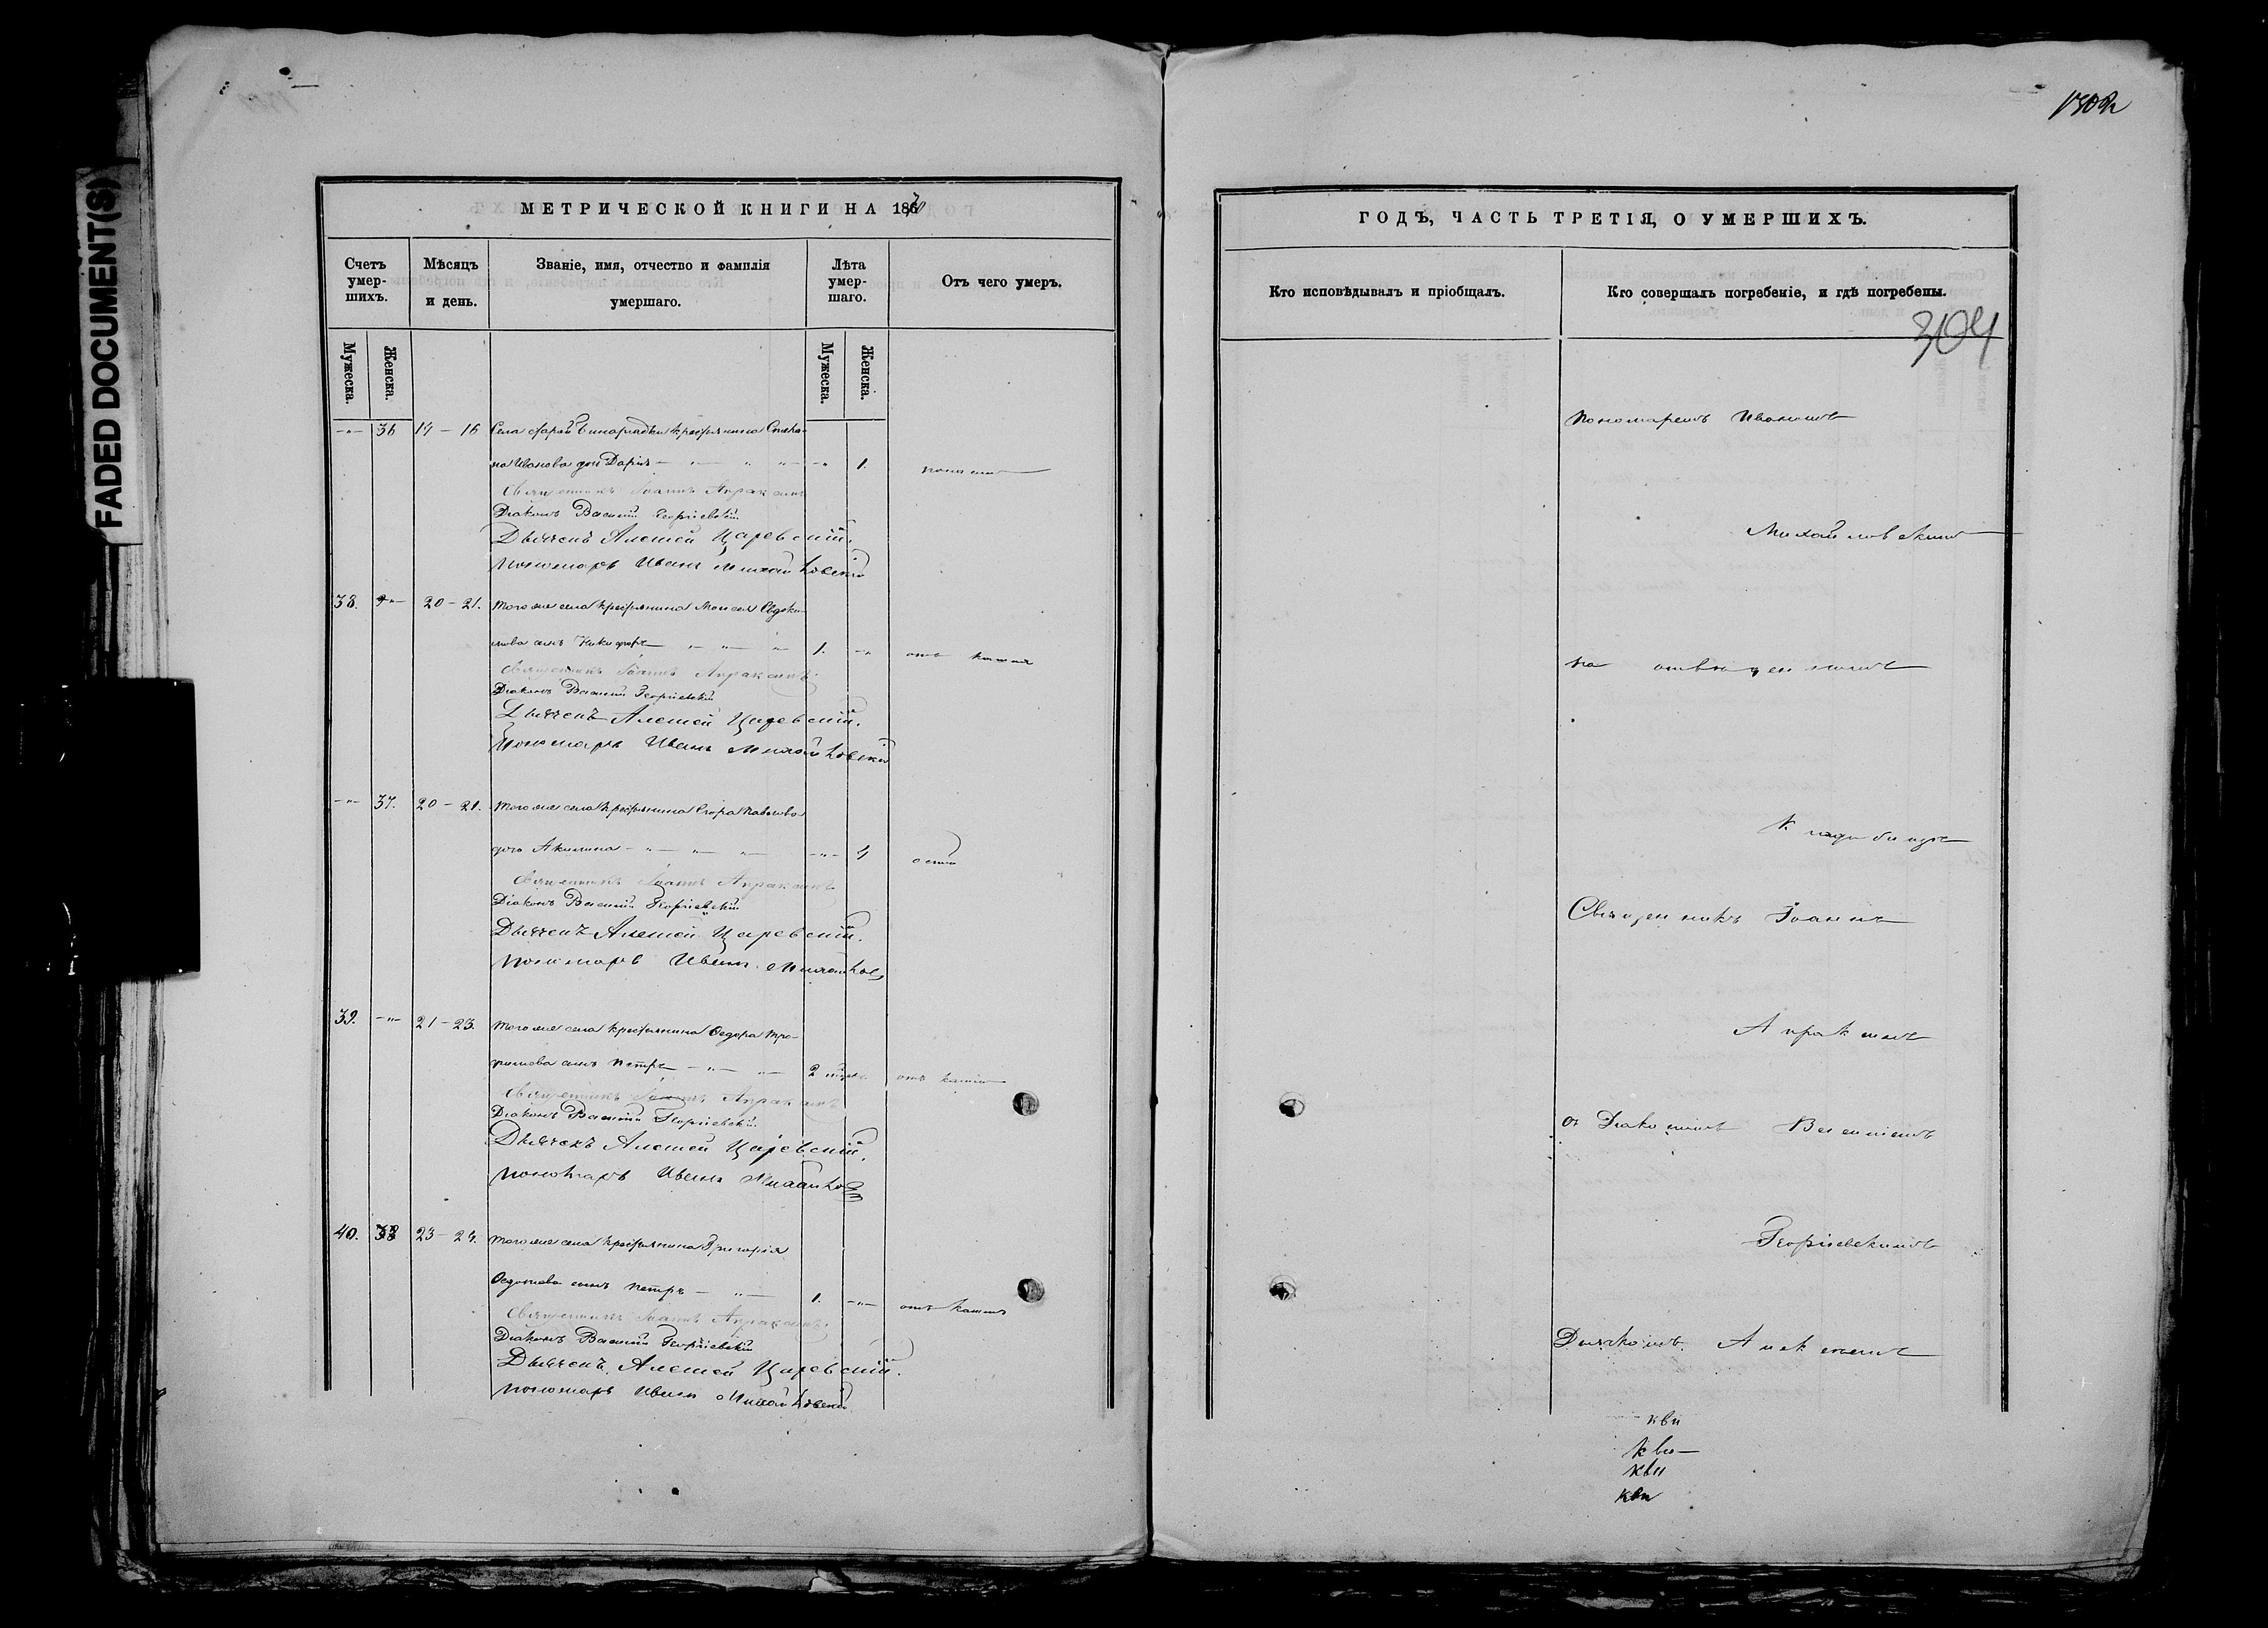 FADED DOCUMENT(S)
МЕТРИЧЕСКОЙ КНИГИ НА 1870
Счетъ умер-шихъ.
Мѣсяцъ и день.
Званіе, имя, отчество и фамилія умершаго.
Лѣта умер-шаго.
Отъ чего умеръ.
Мужеска.
Женска.
Мужеска.
Женска.
36 14 – 16 Села Старой Бинарадки крестьянина Степа-
на Иванова дочь Дарія 1.
Священникъ Іоаннъ Апраксинъ
Діаконъ Василій Георгіевскій
Дьячекъ Алексей Царевский.
Пономарь Иванъ Михайловскій
38. 20 – 21. Того же села крестьянина Моисея Евдоки-
мова сынъ Никифоръ 1. отъ кашля
Священникъ Іоаннъ Апраксинъ.
Діаконъ Василій Георгіевскій
Дьячекъ Алексей Царевский.
Пономарь Иванъ Михайловскій
37. 20 – 21. Того же села крестьянина Егора Павлова
дочь Акилина 4 оспы
Священникъ Іоаннъ Апраксинъ
Діаконъ Василій Георгіевскій
Дьячекъ Алексей Царевский.
Пономарь Иванъ
39. 21 – 23. Того же села крестьянина Федора Тро-
фимова сынъ Петръ 2 отъ кашля
Священникъ Іоаннъ Апраксинъ
Діаконъ Василій Георгіевскій
Дьячекъ Алексей Царевский.
Пономарь Иванъ
40. 38 23 – 24. Того же села крестьянина Григорія
Федотова сынъ Петръ 1. отъ кашля
Священникъ Іоаннъ Апраксинъ.
Діаконъ Василій Георгіевскій
Дьячекъ Алексей Царевский.
Пономарь Иванъ Михайловскій
ГОДЪ, ЧАСТЬ ТРЕТІЯ, О УМЕРШИХЪ.
Кто исповѣдывалъ и пріобщалъ.
Кто совершалъ погребеніе, и гдѣ погребены.
304
Пономаремъ Иваномъ
Михайловскимъ
на отведенномъ
кладбищѣ
Священникъ Іоаннъ
Апраксинъ
съ Діакономъ Василіемъ
Георгіевскимъ
Дьячкомъ Алексеемъ